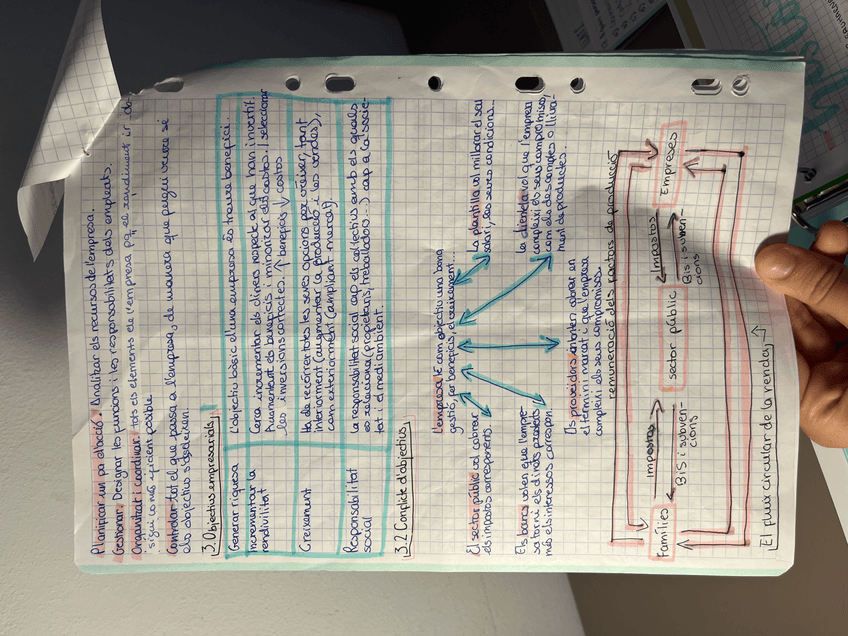 Planificar un pa d'acció. Analitzar els recursos de l'empresa.
Gestionar. Designar les funcions i les responsabilitats dels empleats.
Organitzat i coordinar tots els elements de l'empresa pq el rendiment
sigui lo més eficient possible.
Controlar tot el que passa a l'empresa, de manera que pugui veure si
els objectius s'obtenen
3. Objectius empresarials
Generar riquesa
L'objectiu bàsic d'una empresa és treure benefici...
Incrementar la
rendivilitat
Cerca incrementar els diners respecte al que han invertit.
Augmentant els beneficis i minoritzar els costos. I seleccionar
les inversions correctes. ↑ beneficis ↓ costos
Creixement
Ha de recórrer totes les seves opcions per créixer, tant
interiorment (augmentar la producció i les vendes),
com exteriorment (ampliant mercat)
Responsabilitat
social
La responsabilitat social cap els col·lectius amb els quals
es relaciona (propietaris, treballadors...) cap a la socie-
tat i el mediambient.
3.2 Conflicte d'objectius
L'empresa té com objectiu una bona
gestió, per beneficis, el creixement...
El sector públic vol cobrar
els impostos corresponents.
La plantilla vol millorar el seu
salari, les seves condicions...
Els bancs volen que l'empre-
sa torni els diners prestats
més els interessos correspon.
La clientela vol que l'empresa
compleixi els seus compromisos,
com els descomptes o lliura-
ment de productes...
Els proveïdors volen cobrar en
el termini marcat i que l'empresa
compleixi els seus compromisos.
remuneració dels factors de producció
Famílies
Impostos
BiS i subven-
cions
sector públic
Impostos
BiS i subven-
cions
Empreses
El fluix circular de la renda